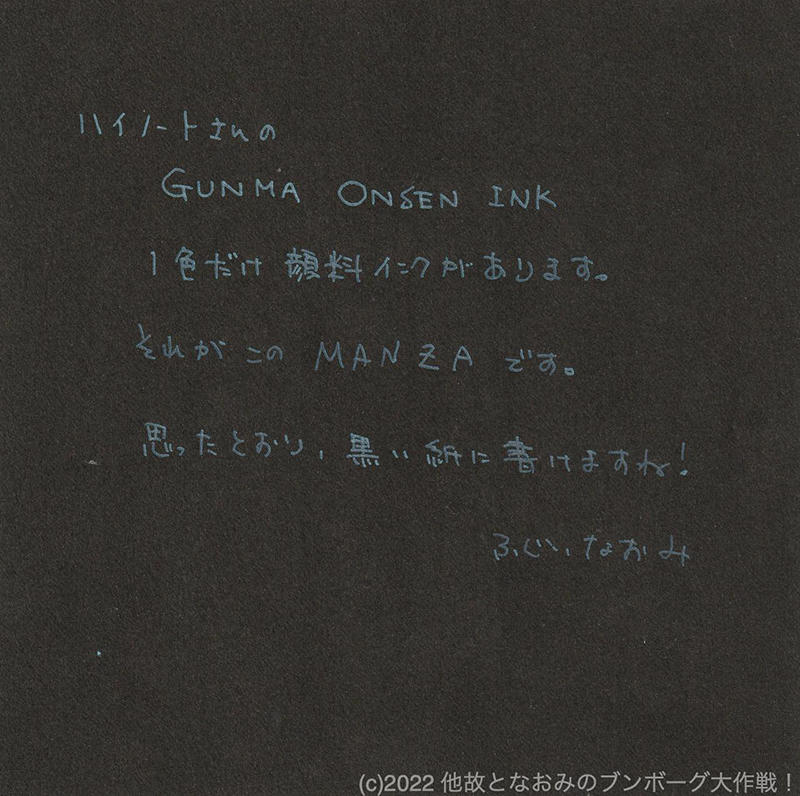 ハイノートさんの
GUNMA ONSEN INK
1色だけ顔料インクがあります。
それがこのMANZAです。
思ったとおり、黒い紙に書けますね!
ふじいなおみ
(c)2022 他故となおみのブンボーグ大作戦！